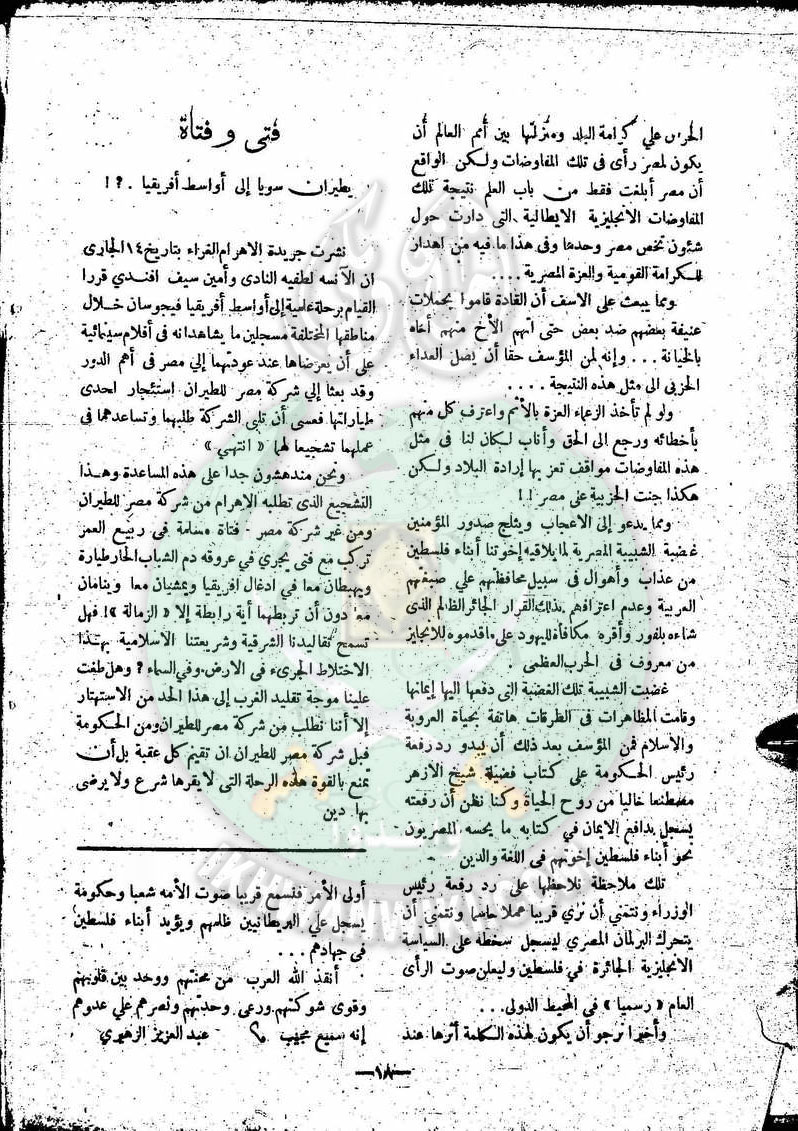 الحرص علي كرامة البلد ومنزلتها بين أمم العالم أن
يكون لمصر رأى فى تلك المفاوضات ولكن الواقع
أن مصر أبلغت فقط من باب العلم نتيجة تلك
المفاوضات الانجليزية الايطالية التى دارت حول
شئون تخص مصر وحدها وفى هذا ما فيه من اهدار
للكرامة القومية والعزة المصرية ....
ومما يبعث على الاسف أن القادة قاموا بحملات
عنيفة بعضهم ضد بعض حتى اتهم الأخ منهم أخاه
بالخيانة ... وإنه لمن المؤسف حقا أن يصل العداء
الحزبى الى مثل هذه النتيجة ....
ولو لم تأخذ الزعماء العزة بالأثم واعترف كل منهم
بأخطائه ورجع الى الحق وأناب لكان لنا فى مثل
هذه المفاوضات مواقف تعز بها إرادة البلاد ولكن
هكذا جنت الحزبية على مصر !!
ومما يدعو إلى الاعجاب ويثلج صدور المؤمنين
غضبة الشبيبة المصرية لما يلاقيه إخوتنا أبناء فلسطين
من عذاب وأهوال فى سبيل محافظتهم علي صبغتهم
العربية وعدم اعترافهم بذلك القرار الجائر الظالم الذى
شاءه بلفور وأقره مكافأة لليهود على ماقدموه للانجليز
من معروف فى الحرب العظمى .
غضبت الشبيبة تلك الغضبة التى دفعها اليها إيمانها
وقامت المظاهرات فى الطرقات هاتفة بحياة العروبة
والاسلام فمن المؤسف بعد ذلك أن يبدو رد رفعة
رئيس الحكومة على كتاب فضيلة شيخ الازهر
مصطنعا خاليا من روح الحياة وكنا نظن أن رفعته
يسجل بدافع الايمان في كتابه ما يحسه المصريون
نحو أبناء فلسطين إخوتهم فى اللغة والدين
تلك ملاحظة نلاحظها على رد رفعة رئيس
الوزراء ونتمني أن نري قريبا عملا حاسما ونتمني أن
يتحرك البرلمان المصري ليسجل سخطه على السياسة
الانجليزية الجائرة في فلسطين وليعلن صوت الرأى
العام « رسميا » فى المحيط الدولى...
وأخيرا نرجو أن يكون لهذه الكلمة أثرها عند
فتى و فتاة
يطيران سويا إلى أواسط أفريقيا .؟!
نشرت جريدة الاهرام الغراء بتاريخ ١٤ الجارى
ان الآنسه لطفيه النادى وأمين سيف افندي قررا
القيام برحلة إلى أواسط أفريقيا فيجوسان خلال
مناطقها المختلفة مسجلين ما يشاهدانه فى أفلام سينمائية
على أن يعرضاها عند عودتهما إلي مصر فى أهم الدور
وقد بعثا إلي شركة مصر للطيران استئجار احدى
طياراتها فعسى أن تلبي الشركة طلبهما وتساعدهما فى
عملهما تشجيعا لهما « انتهي »
ونحن مندهشون جدا على هذه المساعدة وهذا
التشجيع الذى تطلبه الاهرام من شركة مصر للطيران
ومن غير شركة مصر . فتاة مسلمة فى ربيع العمر
تركب مع فتى يجري في عروقه دم الشباب الحار طيارة
ويهبطان معا فى ادغال افريقيا ويمشيان معا وينامان
معا دون أن تربطهما أية رابطة إلا « الزمالة »! فهل
تسمح تقاليدنا الشرقية وشريعتنا الاسلامية بهذا
الاختلاط الجرىء فى الارض وفي السماء ؟ وهل طغت
علينا موجة تقليد الغرب إلى هذا الحد من الاستهتار
إلا أننا نطلب من شركة مصر للطيران ومن الحكومة
قبل شركة مصر للطيران ان تقيم كل عقبة بل أن
تمنع بالقوة هذه الرحلة التى لا يقرها شرع ولا يرضى
بها دين
أولى الأمر فنسمع قريبا صوت الأمه شعبا وحكومة
يسجل علي البريطانيين ظلمهم ويؤيد أبناء فلسطين
فى جهادهم ...
أنقذ الله العرب من محنتهم ووحد بين قلوبهم
وقوى شوكتهم ورعى وحدتهم ونصرهم علي عدوهم
إنه سميع مجيب عبد العزيز الزهيري
—١٨—
وأعدوا
IKHWANWIKI.COM